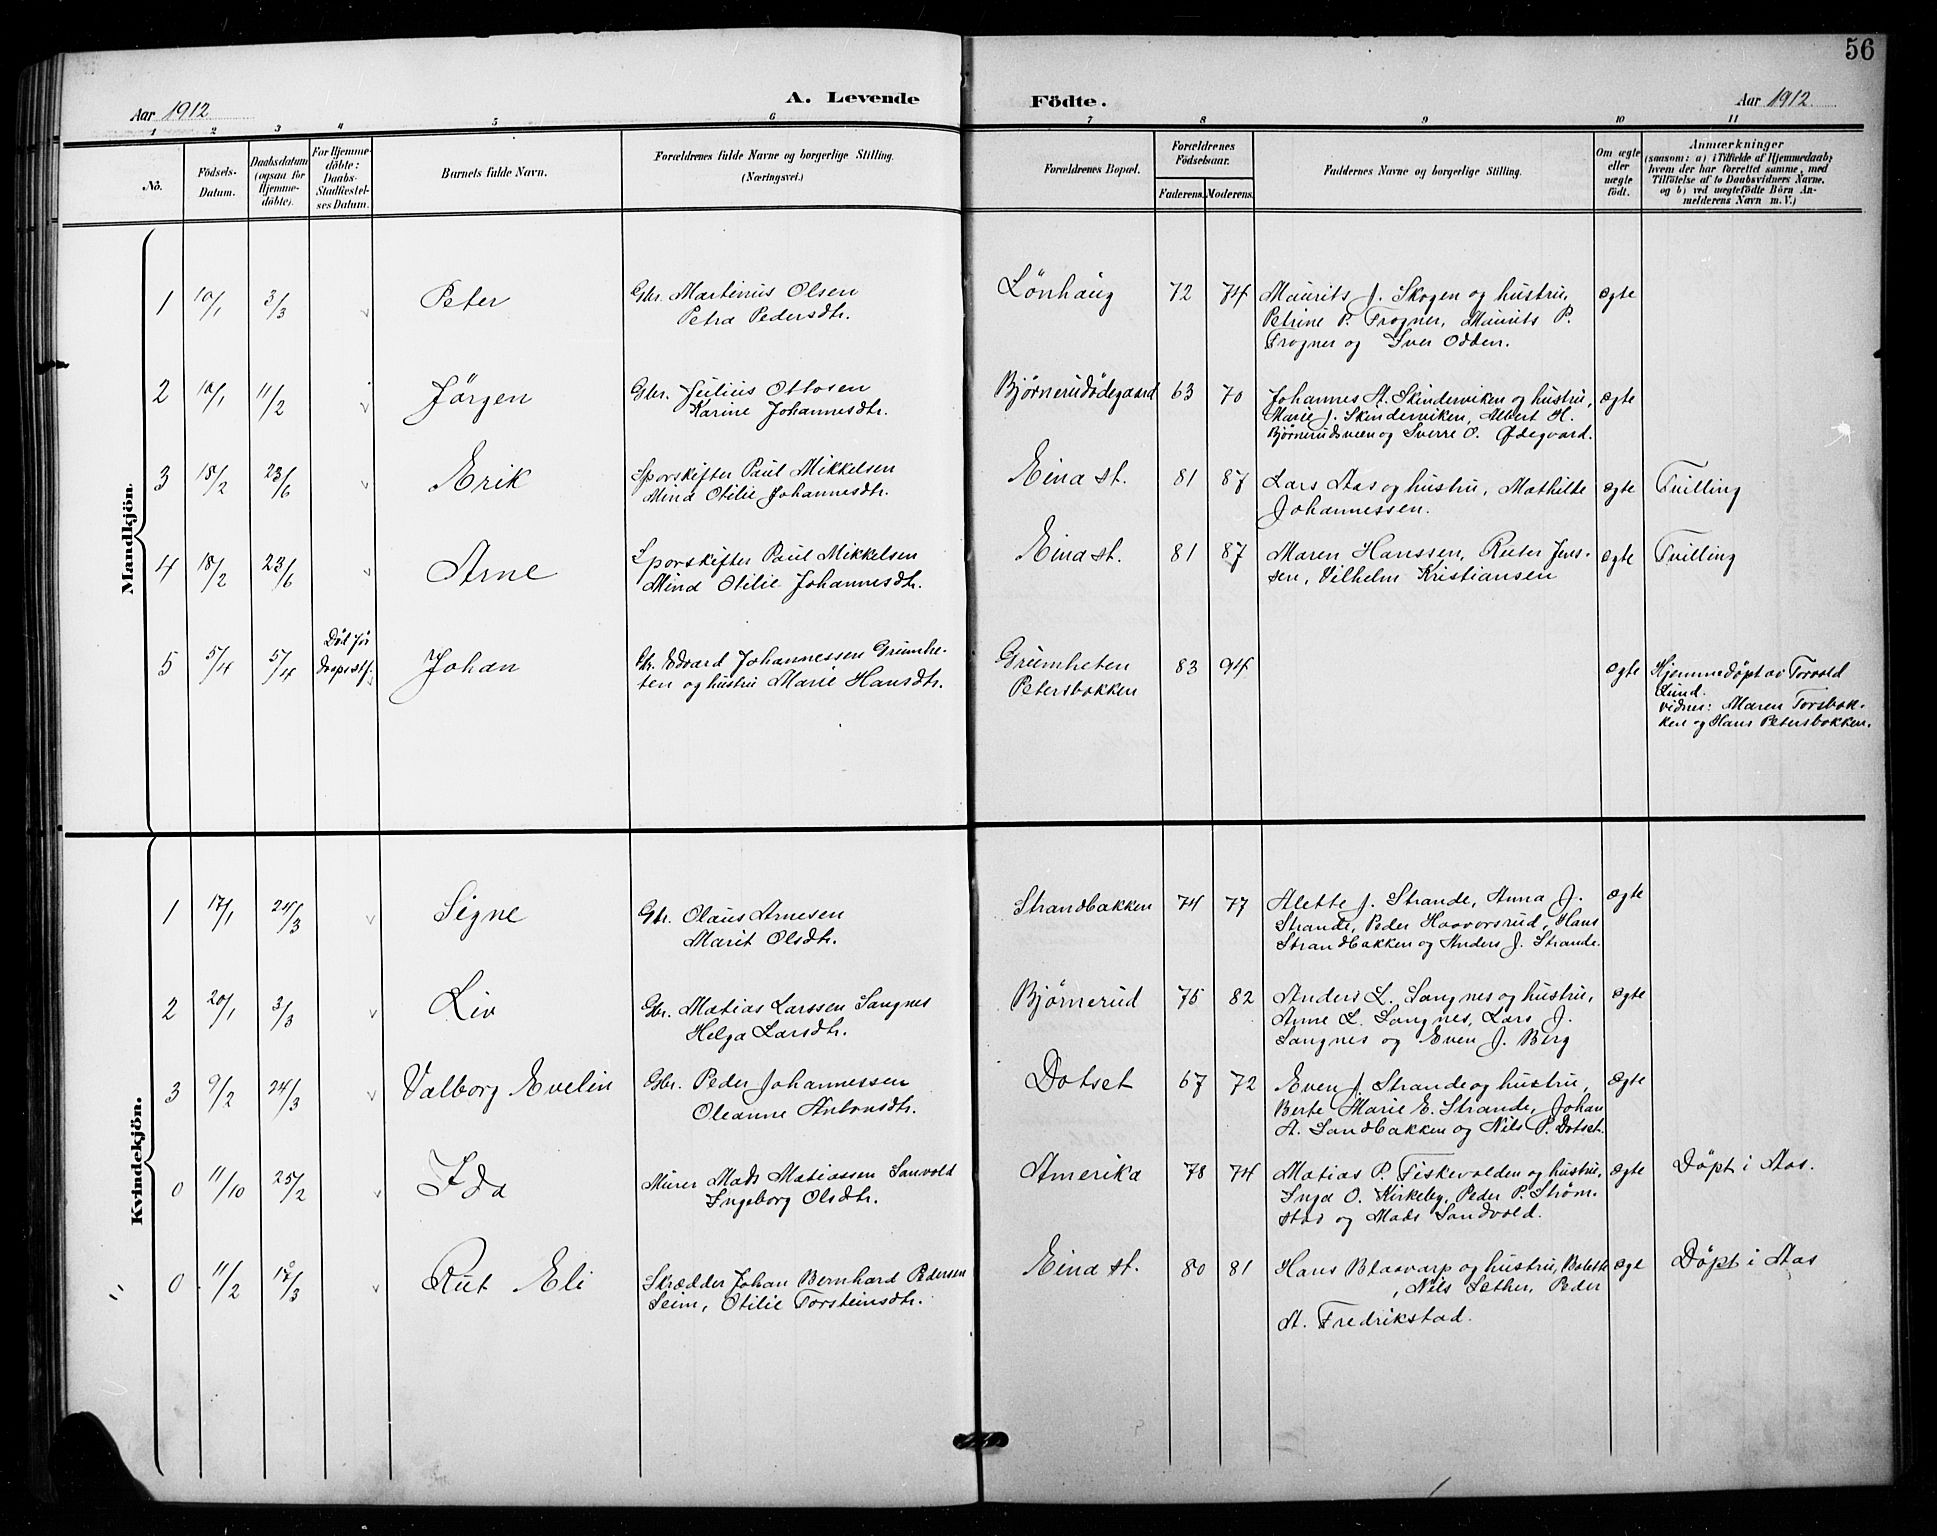 56
Aar 1912
A. Levende
Födte.
Aar 1912.
1 2 3 4 5 6 7 8 9 10 11
No.
Födsels-
Datum.
Daabsdatum
(ogsaa for
Hjemme-
döbte).
For Hjemme-
döbte:
Daabs-
Stadfæstel-
ses Datum.
Barnets fulde Navn.
Forældrenes fulde Navne og borgerlige Stilling.
(Næringsvei.)
Forældrenes Bopæl.
Forældrenes
Födselsaar.
Faderens. Moderens.
Faddernes Navne og borgerlige Stilling.
Om ægte
eller
uægte
födt.
Anmærkninger
(saasom: a) i Tilfælde af Hjemmedaab,
hvem der har forrettet samme, med
Tilföielse af to Daabsvidners Navne,
og b) ved uægtefödte Börn An-
melderens Navn m. V.)
Mandkjön.
1 10/1 3/3 Peter
Gbr. Martinus Olsen
Petra Pedersdtr.
Lönhaug 72 74
Maurits J. Skogen og hustru,
Petrine P. Frogner, Maurits P.
Frogner og Iver Odden.
ægte
2 10/1 11/2 Jörgen
Gbr. Julius Ottosen
Karine Johannesdtr.
Bjørnerudødegaard 63 70
Johannes A. Skinderviken og hustru,
Marie J. Skinderviken, Albert H.
Bjørnerudsveen og Sverre O. Ødegaard.
ægte
3 18/2 23/6 Erik
Sporskifter Paul Mikkelsen
Mina Otilie Johannesdtr.
Eina st. 81 87
Lars Aas og hustru, Mathilde
Johannessen.
ægte Tvilling
4 18/2 23/6 Arne
Sporskifter Paul Mikkelsen
Mina Otilie Johannesdtr.
Eina st. 81 87
Maren Hanssen, Peter Jens-
sen, Vilhelm Kristiansen
ægte Tvilling
5 5/4 5/4 Död før
Daapsstf.
Johan
Gbr. Edvard Johannessen Grumhe-
ten og hustru Marie Hansdtr.
Grumheten
Petersbakken
83 94
ægte
Hjemmedöpt av Torvald
Lund.
vidner: Maren Torsbak-
ken og Hans Petersbakken.
Kvindekjön.
1 17/1 24/3 Signe
Gbr. Olaus Arnesen
Marit Olsdtr.
Strandbakken 74 77
Alette J. Strande, Anna J.
Strande, Peder Haavorsrud, Hans
Strandbakken og Anders J. Strande.
ægte
2 20/1 3/3 Liv
Gbr. Matias Larssen Sangnes
Helga Larsdtr.
Bjørnerud 75 82
Anders L. Sangnes og hustru,
Anne L. Sangnes, Lars J.
Sangnes og Even J. Berg
ægte
3 9/2 24/3 Valborg Evelin
Gbr. Peder Johannessen
Oleanne Antonsdtr.
Dotset 67 72
Even J. Strande og hustru,
Berte Marie E. Strande, Johan
A. Sandbakken og Nils P. Dotset.
ægte
0 11/10 25/2 Ida
Murer Mads Matiassen Sanvold
Ingeborg Olsdtr.
Amerika 78 74
Matias P. Fiskevolden og hustru,
Inga O. Kirkeby, Peder P. Strøm-
stad og Mads Sandvold.
ægte Döpt i Aas.
0 11/2 Rut Eli
Skrædder Johan Bernhard Pedersen
Seim, Otilie Torsteinsdtr.
Eina st. 80 81
Hans Blaavarp og hustru,
Nils Sether, Peder
A. Fredrikstad.
ægte Döpt i Aas